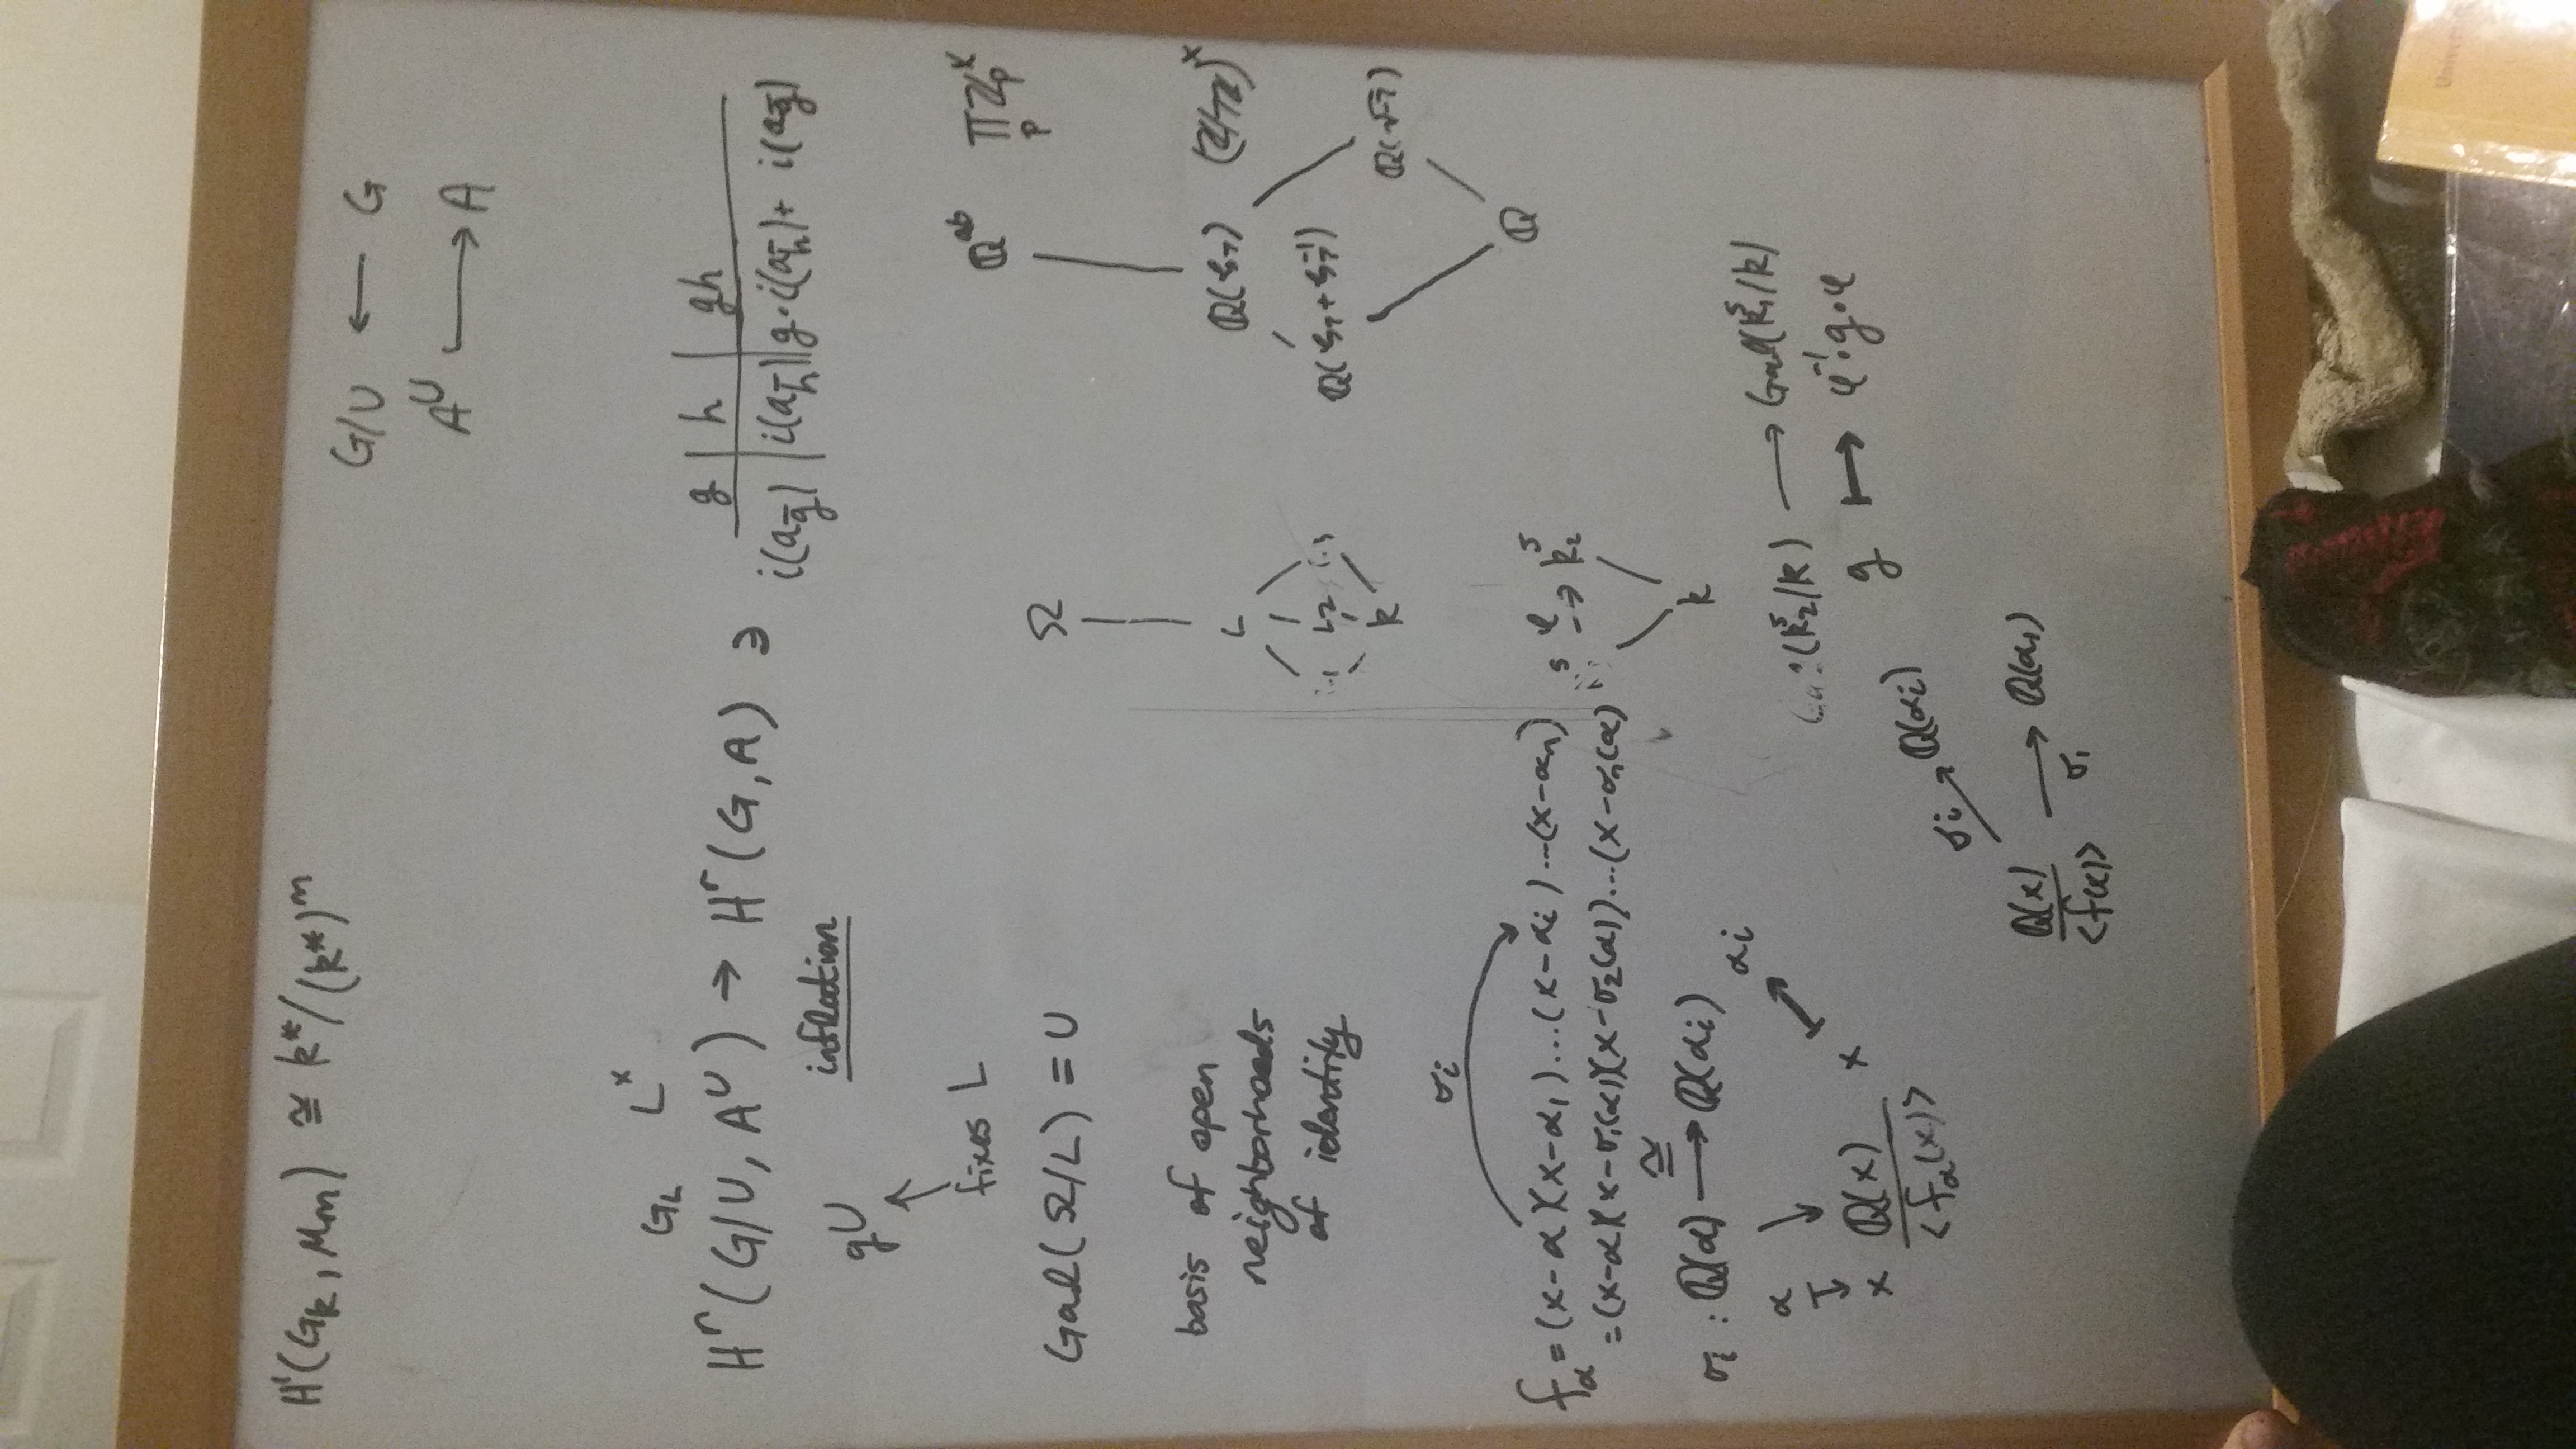 H¹(G_k, μ_m) ≅ k*/(k*)^m
G/U ← G
A^U ↪ A
G_L L^×
H^r(G/U, A^U) → H^r(G, A) ∋
g | h | gh
i(a_ḡ) | i(a_h̄) | g·i(a_h̄)+ i(a_ḡ)
inflation
gU
↑
fixes L
Gal(Ω/L) = U
basis of open
neighborhoods
of identity
Ω
L
L2
k
Q^ab ∏_p Z_p^×
Q(ζ_7) (Z/7Z)^×
Q(ζ_7+ζ_7^-1)
Q(√-7)
Q
σ_i
f_α = (x-α)(x-α_1)...(x-α_i)...(x-α_n)
= (x-α)(x-σ_1(α))(x-σ_2(α))...(x-σ_n(α)
σ_i : Q(α) ≅→ Q(α_i)
α ↦ x Q(x)/<f_α(x)> x ↦ α_i
s φ→ k_2^s
k
(k_2^s/k) → Gal(k_1^s/k)
g ↦ φ^-1·g·φ
σ_i ↗ Q(α_i)
Q(x)/<f(x)> →σ_1 Q(α_1)
Univers